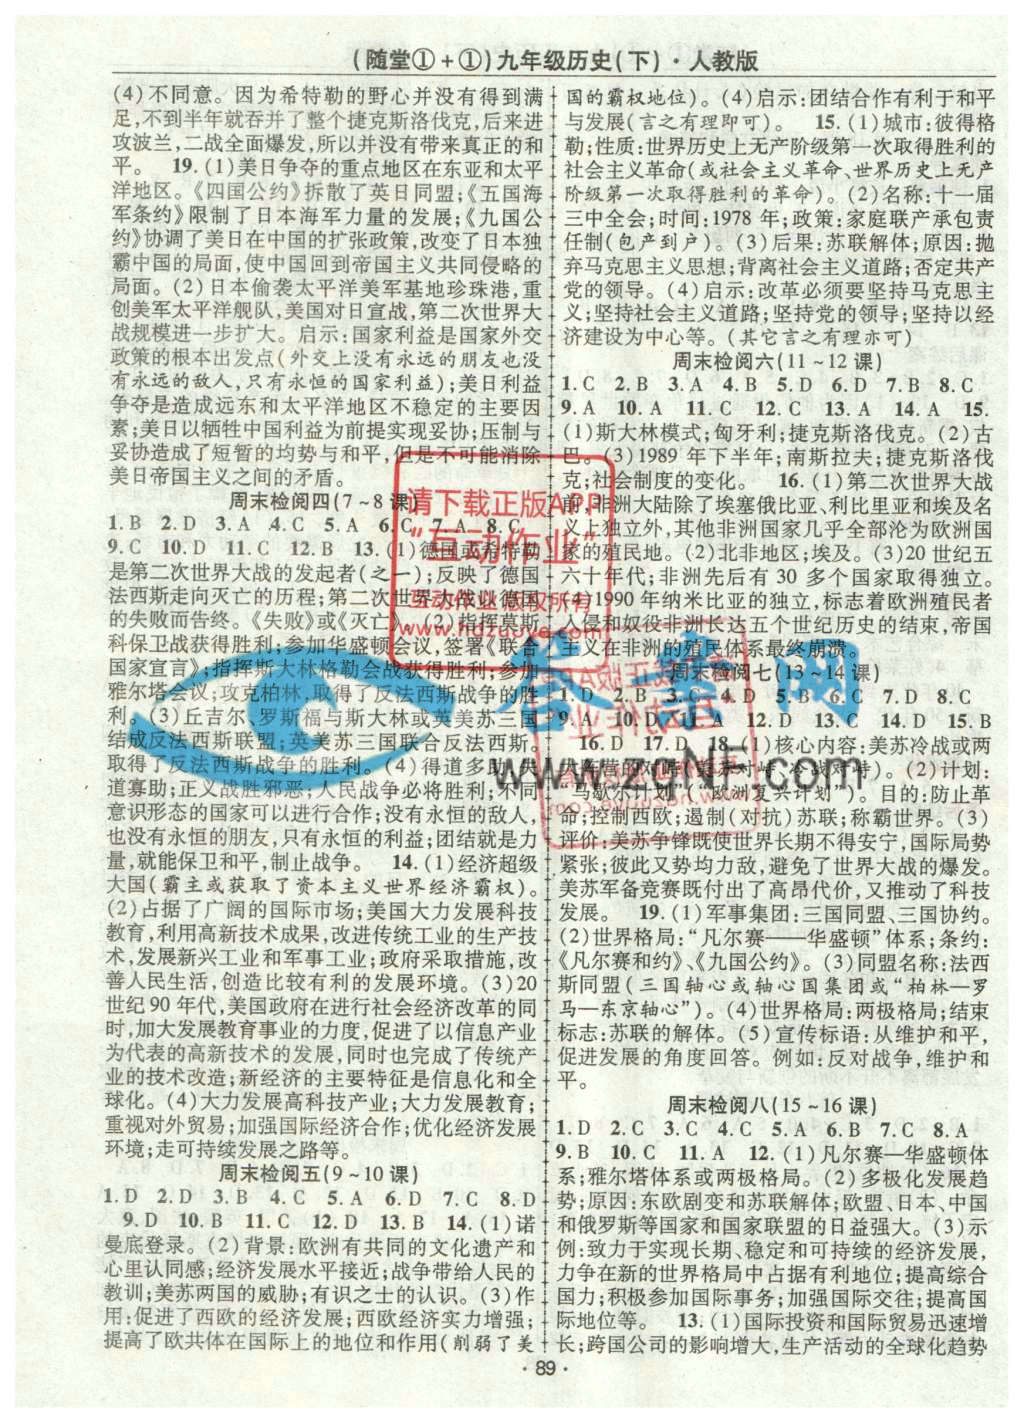 (随堂①+①)九年级历史(下)·人教版
(4)不同意。因为希特勒的野心并没有得到满
足,不到半年就吞并了整个捷克斯洛伐克,后来进
攻波兰,二战全面爆发,所以并没有带来真正的和
平。 19. (1)美日争夺的重点地区在东亚和太平
洋地区。《四国公约》拆散了英日同盟;《五国海
军条约》限制了日本海军力量的发展;《九国公
约》协调了美日在中国的扩张政策,改变了日本独
霸中国的局面,使中国回到帝国主义共同侵略的
局面。(2)日本偷袭太平洋美军基地珍珠港,重
创美军太平洋舰队,美国对日宣战,第二次世界大
战规模进一步扩大。启示:国家利益是国家外交
政策的根本出发点(外交上没有永远的朋友也没
有永远的敌人,只有永恒的国家利益);美日利益
争夺是造成远东和太平洋地区不稳定的主要因
素;美日以牺牲中国利益为前提实现妥协;压制与
妥协造成了短暂的均势与和平,但是不可能消除
美日帝国主义之间的矛盾。
周末检阅四(7~8课)
1. B 2. D 3. A 4. C 5. A 6. C 7. A 8. C
9. C 10. D 11. C 12. B 13. (1)德国或希特勒
是第二次世界大战的发起者(之一);反映了德国
法西斯走向灭亡的历程;第二次世界大战以德国
的失败而告终。《失败》或《灭亡》。(2)指挥莫斯
科保卫战获得胜利;参加华盛顿会议,签署《联合
国家宣言》;指挥斯大林格勒会战获得胜利;参加
雅尔塔会议;攻克柏林,取得了反法西斯战争的胜
利。(3)丘吉尔、罗斯福与斯大林或英美苏三国
结成反法西斯联盟;英美苏三国联合反法西斯。
取得了反法西斯战争的胜利。(4)得道多助,失
道寡助;正义战胜邪恶;人民战争必将胜利;不同
意识形态的国家可以进行合作;没有永恒的敌人,
也没有永恒的朋友,只有永恒的利益;团结就是力
量,就能保卫和平,制止战争。 14. (1)经济超级
大国(霸主或获取了资本主义世界经济霸权)。
(2)占据了广阔的国际市场;美国大力发展科技
教育,利用高新技术成果,改进传统工业的生产技
术,发展新兴工业和军事工业;政府采取措施,改
善人民生活,创造比较有利的发展环境。(3)20
世纪90年代,美国政府在进行社会经济改革的同
时,加大发展教育事业的力度,促进了以信息产业
为代表的高新技术的发展,同时也完成了传统产
业的技术改造;新经济的主要特征是信息化和全
球化。(4)大力发展高科技产业;大力发展教育;
重视对外贸易;加强国际经济合作;优化经济发展
环境;走可持续发展之路等。
周末检阅五(9~10课)
1. D 2. D 3. B 4. C 5. A 6. D 7. C 8. D
9. D 10. B 11. C 12. D 13. B 14. (1)诺
曼底登录。(2)背景:欧洲有共同的文化遗产和
心里认同感;经济发展水平接近;战争带给人民的
教训;美苏两国的威胁;有识之士的认识。(3)作
用:促进了西欧的经济发展;西欧经济实力增强;
提高了欧共体在国际上的地位和作用(削弱了美
国的霸权地位)。(4)启示:团结合作有利于和平
与发展(言之有理即可)。 15. (1)城市:彼得格
勒;性质:世界历史上无产阶级第一次取得胜利的
社会主义革命(或社会主义革命、世界历史上无产
阶级第一次取得胜利的革命)。(2)名称:十一届
三中全会;时间:1978年;政策:家庭联产承包责
任制(包产到户)。(3)后果:苏联解体;原因:抛
弃马克思主义思想;背离社会主义道路;否定共产
党的领导。(4)启示:改革必须要坚持马克思主
义;坚持社会主义道路;坚持党的领导;坚持以经
济建设为中心等。(其它言之有理亦可)
周末检阅六(11~12课)
1. C 2. B 3. A 4. B 5. D 6. D 7. B 8. C
9. A 10. A 11. C 12. C 13. A 14. A 15.
(1)斯大林模式;匈牙利;捷克斯洛伐克。(2)古
巴。(3)1989年下半年;南斯拉夫;捷克斯洛伐
克;社会制度的变化。 16. (1)第二次世界大战
前,非洲大陆除了埃塞俄比亚、利比里亚和埃及名
义上独立外,其他非洲国家几乎全部沦为欧洲国
家的殖民地。(2)北非地区;埃及。(3)20世纪五
六十年代;非洲先后有30多个国家取得独立。
(4)1990年纳米比亚的独立,标志着欧洲殖民者
入侵和奴役非洲长达五个世纪历史的结束,帝国
主义在非洲的殖民体系最终崩溃。
周末检阅七(13~14课)
1. D 2. B 3. C 4. D 5. C 6. C 7. D 8. D
9. A 10. D 11. A 12. D 13. C 14. D 15. B
16. D 17. D 18. (1)核心内容:美苏冷战或两
大阵营的对峙(美苏对峙、冷战对峙)。(2)计划:
“马歇尔计划”(“欧洲复兴计划”)。目的:防止革
命;控制西欧;遏制(对抗)苏联;称霸世界。(3)
评价:美苏争锋既使世界长期不得安宁,国际局势
紧张;彼此又势均力敌,避免了世界大战的爆发。
美苏军备竞赛既付出了高昂代价,又推动了科技
发展。 19. (1)军事集团:三国同盟、三国协约。
(2)世界格局:“凡尔赛——华盛顿”体系;条约:
《凡尔赛和约》、《九国公约》。(3)同盟名称:法西
斯同盟(三国轴心或轴心国集团或“柏林—罗
马—东京轴心”)。(4)世界格局:两极格局;结束
标志:苏联的解体。(5)宣传标语:从维护和平,
促进发展的角度回答。例如:反对战争,维护和
平。
周末检阅八(15~16课)
1. D 2. C 3. C 4. C 5. A 6. B 7. C 8. A
9. B 10. C 11. A 12. (1)凡尔赛—华盛顿体
系;雅尔塔体系或两极格局。(2)多极化发展趋
势;原因:东欧剧变和苏联解体;欧盟、日本、中国
和俄罗斯等国家和国家联盟的日益强大。(3)示
例:致力于实现长期、稳定和可持续的经济发展,
力争在新的世界格局中占据有利地位;提高综合
国力;积极参加国际事务;加强国际交往;提高国
际地位等。 13. (1)国际投资和国际贸易迅速增
长;跨国公司的影响增大,生产活动的全球化趋势
·89·
请下载正版APP
“互动作业”
互动作业 版权所有
www.hdzuoye.com
答案网
www.zqNF.com